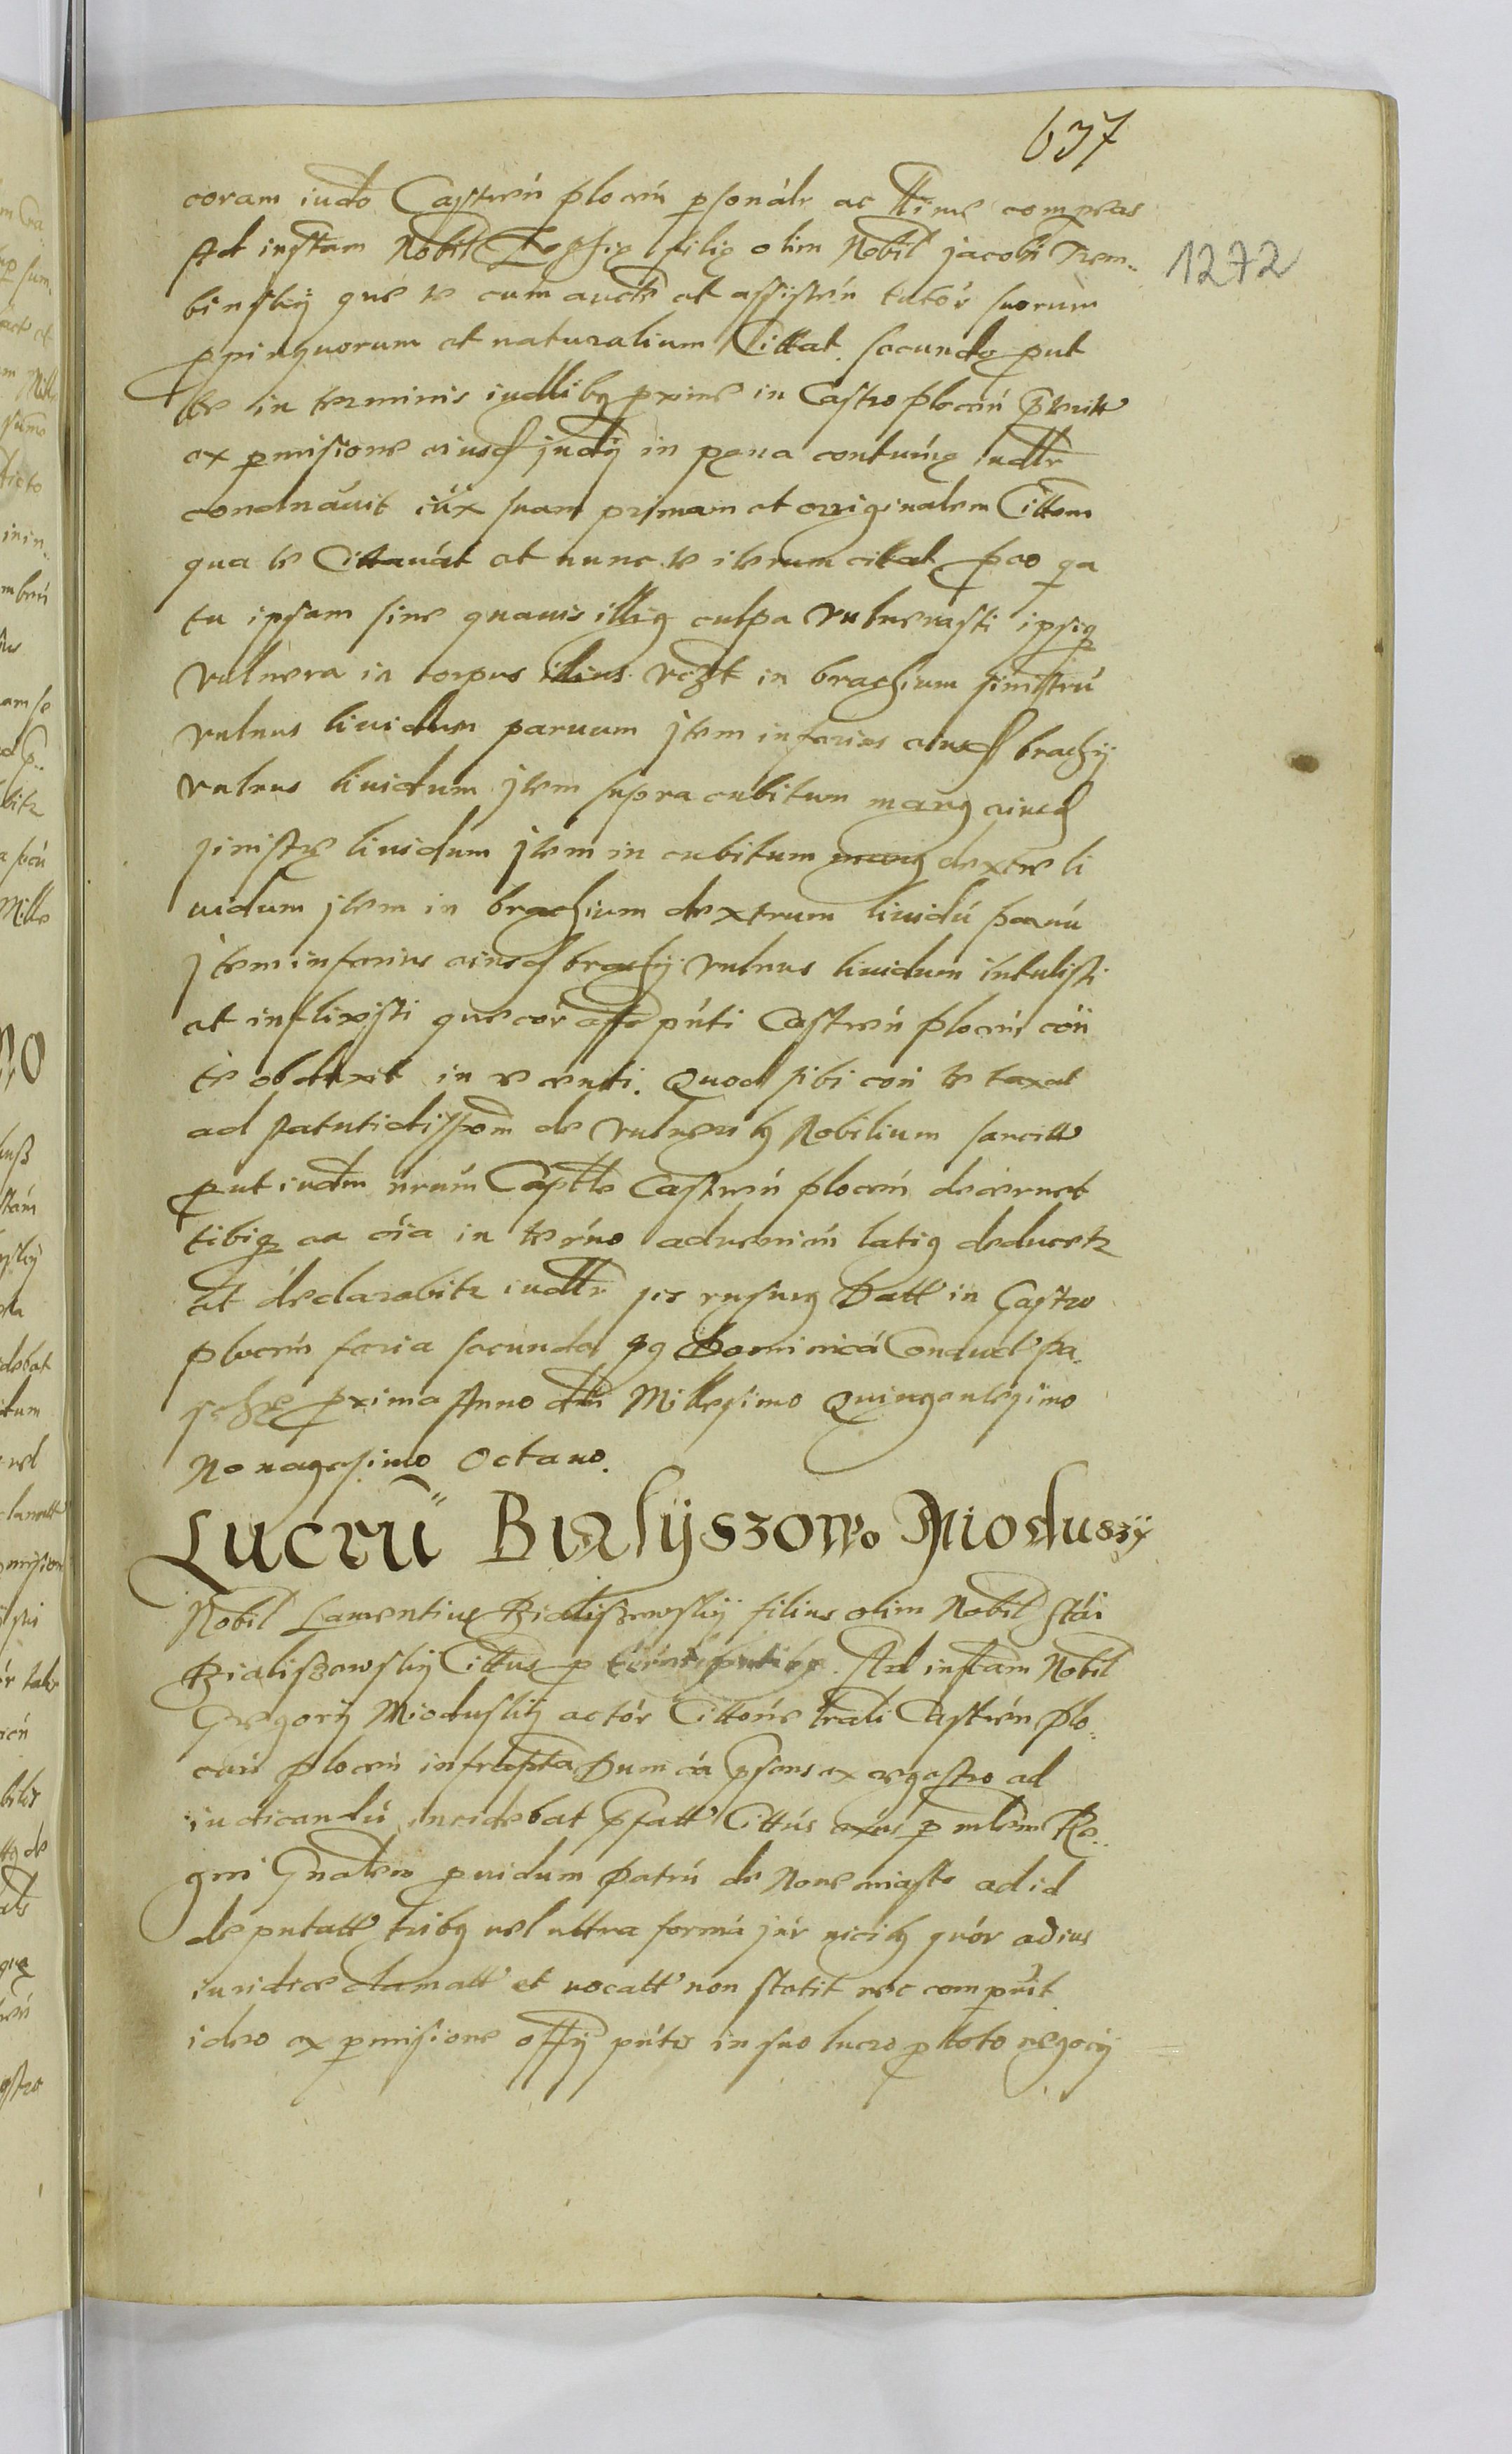 637
1272
coram iudo Castren plocen psonalr ac ttime compeas
Ad instam Nobil Zophie filie olim Nobil jacobi Trem-
binskij que te cum aucte et assisten tutor suorum
ppinquorum et naturalium Cittat secundo put
te in terminis iudlibq pxime in Castro plocen
ex pmisione eiusd judij in pena contumie iudlr
condnauit iux suam primam et originalem Cittem
qua te Cittauat et nunc te iterum citat pco qa
tu ipsam sine quauis illig culpa vulnerasti ipsiq
vulnera in corpus illius vczt in brachium sinistru
vulnus liuidum paruum jtem inferius eiusd brachij
vulnus liuidum jtem supra cubitum mang eiusd
sinistre liuidum jtem in cubitum mang dextre li
uidum jtem in brachium dextrum liuidu paruu
jtem inferius eiusd brachij vulnus liuidum intulisti
et inflixisti que cor offo pnti Castren plocen con
te obduxit in recenti. Quod sibi con te taxat
ad statuti disspom de vulneribq Nobilium sancitt
put iudm nrum Captle Castren plocen decernet
tibiq ea oia in terno aduenien latig deducetr
et declarabitr iudlr is rusurg Datt in Castro
plocen feria secunda pg Dominica Conductpa
sche pxima Anno dni Millesimo Quingentesimo
Nonagesimo Octauo.
Lucru Bialyszowo Mioduszy
Nobil Laurentius Bialiszewskij filius olim Nobil stai
Bialiszowskij Cittus p Ad instam Nobil
Gregorij Mioduskij actor Cittone trali Castren plo-
cen plocen infrapta Dum ca psens ex regestro ad
iudicandu incidebat pfatt Cittus p mlem Re-
gni Gnalem puidum Petru de Nouemiasto ad id
deputatt tribq uel ultra forma jur uicibq quor adius
iuridice clamatt et vocatt non stetit nec compuit
ideo ex pmisione offij pnts in suo lucro p toto negocij